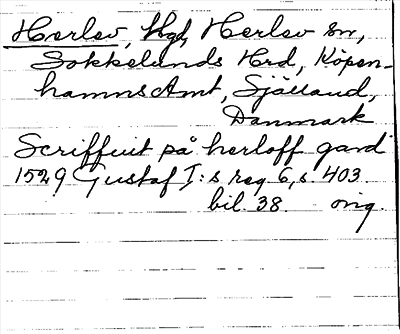 Herlev, Hgd, Herlev sn,
Sokkelunds Hrd, Köpen-
hamns Amt, Sjælland,
Danmark
Scriffuit på herloff gard
1529 Gustaf I:s reg 6, s. 403.
bil. 38. orig.